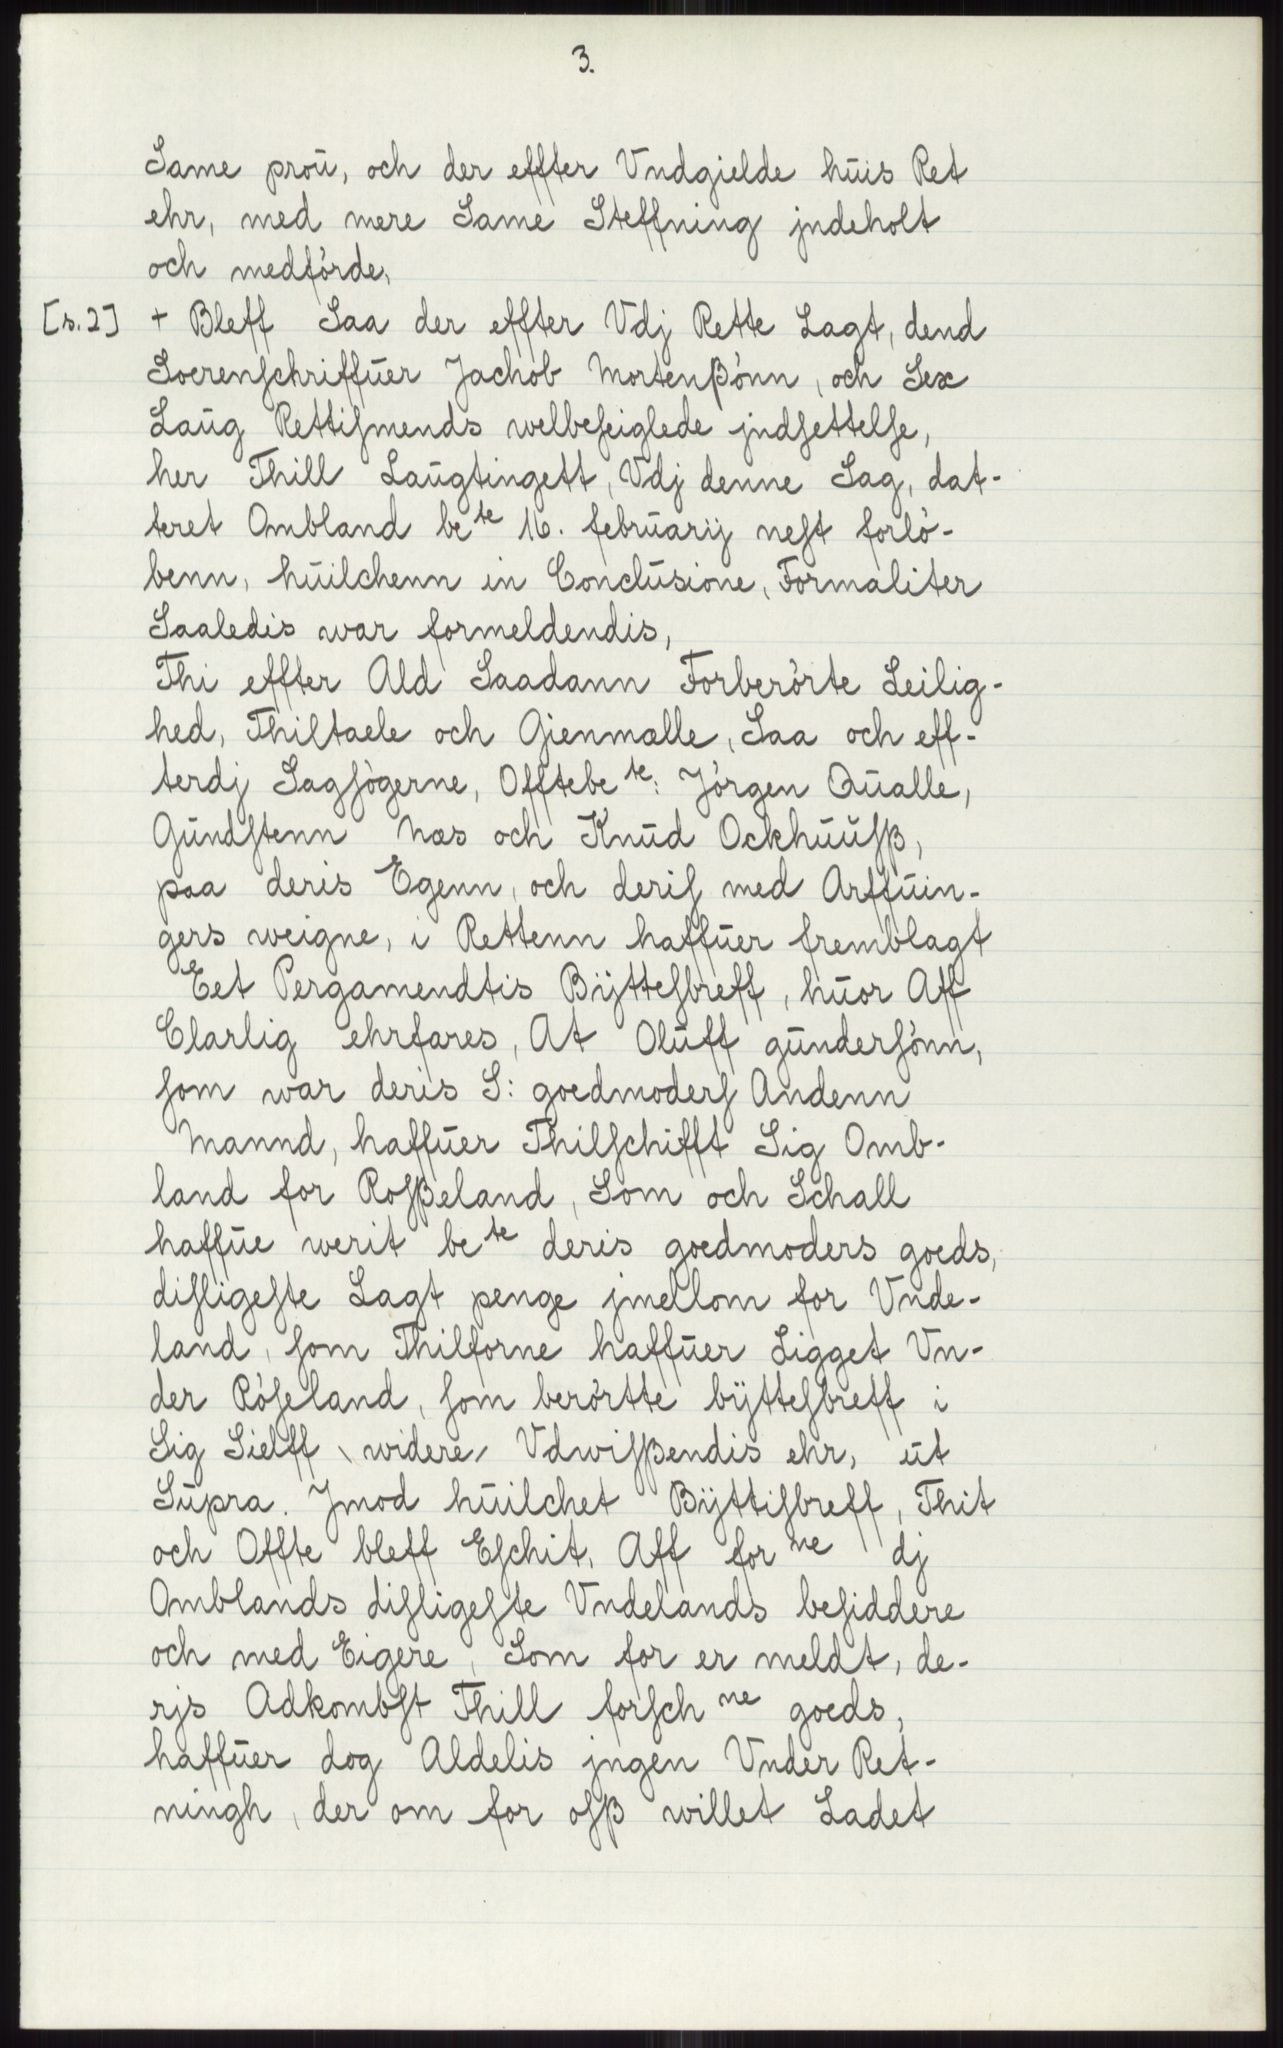 3.
Same proū, och der effter Vndgielde hūis Ret
ehr, med mere Same Steffning jndeholt
och medförde,
[s.2] + Bleff Saa der effter Vdj Rette Lagt, dend
Soerenſchriffūer Jachob Mortenßönn, och Sex
Laūg Rettiſmends welbeſeiglede jndſettelſe,
her Thill Laūgtingett, Vdj denne Sag, dat-
teret Ombland be te 16. febrūarij neſt forlö-
benn, hūilchenn in Conclūsione, Formaliter
Saaledis war formeldendis,
Thi effter Ald Saadann Forberörte Leilig-
hed, Thiltaele och Gienmælle, Saa och eff-
terdj Sagſögerne, Offtebe te: Jörgen Qūalle,
Gūndſtenn Næs och Knūd Ockhūūſß,
paa deris Egenn, och deriſ med Arffūin-
gers weigne, i Rettenn haffūer fremblagt
Eet Pergamendtis Bÿtteſbreff, hūor Aff
Clarlig ehrfares, At Olūff gūnderſönn,
ſom war deris S: goedmoderſ Andenn
Mannd, haffūer Thilſchifft Sig Omb-
land for Roſßeland, Som och Schall
haffūe werit be te deris goedmoders goeds,
diſligeſte Lagt penge jmellom for Vnde-
land, ſom Thilforne haffūer Ligget Vn-
der Röſeland, ſom berörtte bÿtteſbreff i
Sig Sielff \ widere / Vdwiſßendis ehr, ūt
Sūpra. Jmod hūilchet Bÿttiſbreff, Thit
och Offte bleff Eſchit, Aff for ne dj
Omblands diſligeſte Vndelands beſiddere
och med Eigere, Som for er meldt, de-
rjs Adkombſt Thill forſch ne goeds,
haffūer dog Aldelis jngen Vnder Ret-
ningh, der om for oſß willet Ladet